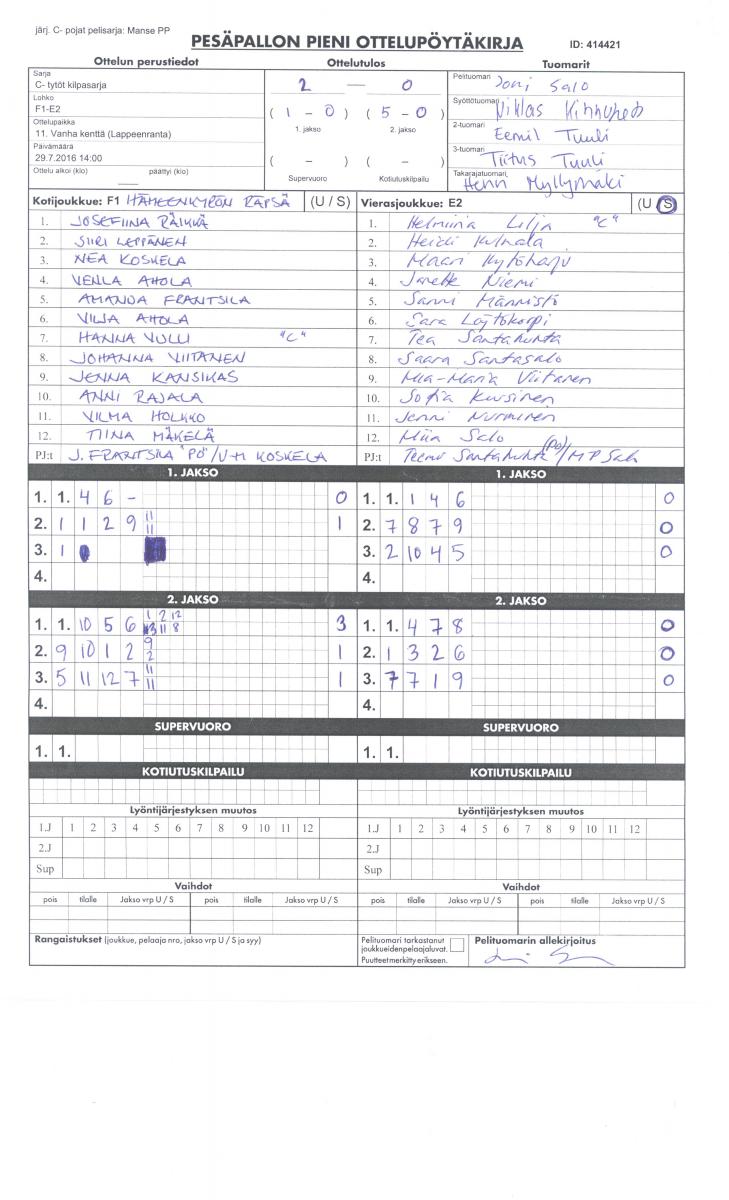 järj. C- pojat pelisarja: Manse PP
PESÄPALLON PIENI OTTELUPÖYTÄKIRJA
ID: 414421
Ottelun perustiedot
Ottelutulos
Tuomarit
Sarja
C- tytöt kilpasarja
Lohko
F1-E2
Ottelupaikka
11. Vanha kenttä (Lappeenranta)
Päivämäärä
29.7.2016 14:00
Ottelu alkoi (klo) päättyi (klo)
2 — 0
( 1 - 0 ) ( 5 - 0 )
1. jakso 2. jakso
( - ) ( - )
Supervuoro Kotiutuskilpailu
Pelituomari Joni Salo
Syöttötuomari Niklas
2-tuomari Eemil Tuuli
3-tuomari Tiitus Tuuli
Takarajatuomari Henri Myllymäki
Kotijoukkue: F1 HÄMEENKYRÖN RÄPSÄ (U / S)
1. JOSEFIINA RÄIKKÄ
2. SIIRI LEPPÄNEN
3. NEA KOSKELA
4. VENLA AHOLA
5. AMANDA FRANTSILA
6. VILJA AHOLA
7. HANNA VULLI "C"
8. JOHANNA VIITANEN
9. JENNA KANSIKAS
10. ANNI RAJALA
11. VILMA HOLKKO
12. TIINA MÄKELÄ
PJ:t J. FRANTSILA "PO" / V-M KOSKELA
Vierasjoukkue: E2 (U / S)
1. Helmiina Lilja "C"
2. Heidi
3. Maari Kytöharju
4. Janette Niemi
5. Sanni Männistö
6. Sara Löytökorpi
7. Tea Santahuhta
8. Saara Santasalo
9. Mia-Maria Viitanen
10. Sofia Kursinen
11. Jenni Nurminen
12. Miia Salo
PJ:t Teemu Santahuhta (PO) / M P Salo
1. JAKSO
1. 1. 4 6 - 0
2. 1 1 2 9 11 11 1
3. 1
4.
1. JAKSO
1. 1. 1 4 6 0
2. 7 8 7 9 0
3. 2 10 4 5 0
4.
2. JAKSO
1. 1. 10 5 6 1 2 12 3 11 8 3
2. 9 10 1 2 9 2 1
3. 5 11 12 7 11 11 1
4.
2. JAKSO
1. 1. 4 7 8 0
2. 1 3 2 6 0
3. 7 7 1 9 0
4.
SUPERVUORO
1. 1.
SUPERVUORO
1. 1.
KOTIUTUSKILPAILU
KOTIUTUSKILPAILU
Lyöntijärjestyksen muutos
1.J 1 2 3 4 5 6 7 8 9 10 11 12
2.J
Sup
Lyöntijärjestyksen muutos
1.J 1 2 3 4 5 6 7 8 9 10 11 12
2.J
Sup
Vaihdot
pois tilalle Jakso vrp U / S pois tilalle Jakso vrp U / S
Vaihdot
pois tilalle Jakso vrp U / S pois tilalle Jakso vrp U / S
Rangaistukset (joukkue, pelaaja nro, jakso vrp U / S ja syy)
Pelituomari tarkastanut
joukkueidenpelaajaluvat.
Puutteet merkitty erikseen.
Pelituomarin allekirjoitus